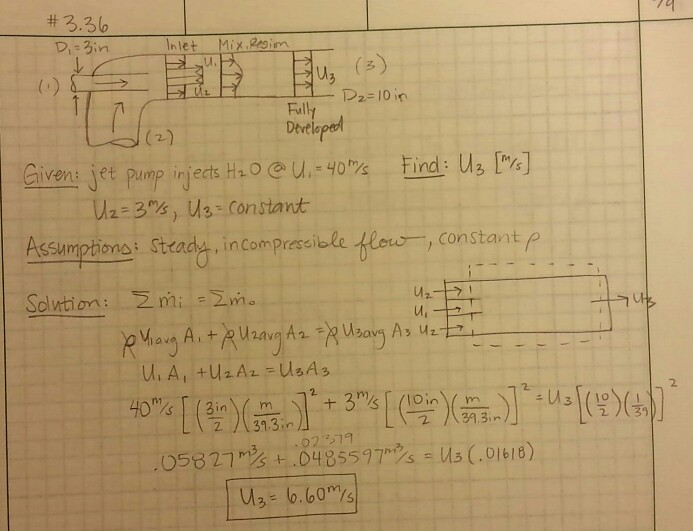 #3.36
D₁=3in
Inlet Mix. Region
(1)
U₁
U₂
U₃
(3)
D₂=10in
Fully
Developed
(2)
Given: jet pump injects H₂O @ U₁=40 m/s Find: U₃ [m/s]
U₂=3 m/s, U₃=constant
Assumptions: steady, incompressible flow, constant ρ
Solution: Σṁᵢ = Σṁₒ
U₂
U₁
U₂
U₃
ρU₁avg A₁ + ρU₂avg A₂ = ρU₃avg A₃
U₁A₁ + U₂A₂ = U₃A₃
40 m/s [(3in/2)(m/39.3in)]² + 3 m/s [(10in/2)(m/39.3in)]² = U₃[(10/2)(1/39)]²
.02379
.05827 m³/s + .0485597 m³/s = U₃(.01618)
U₃ = 6.60 m/s